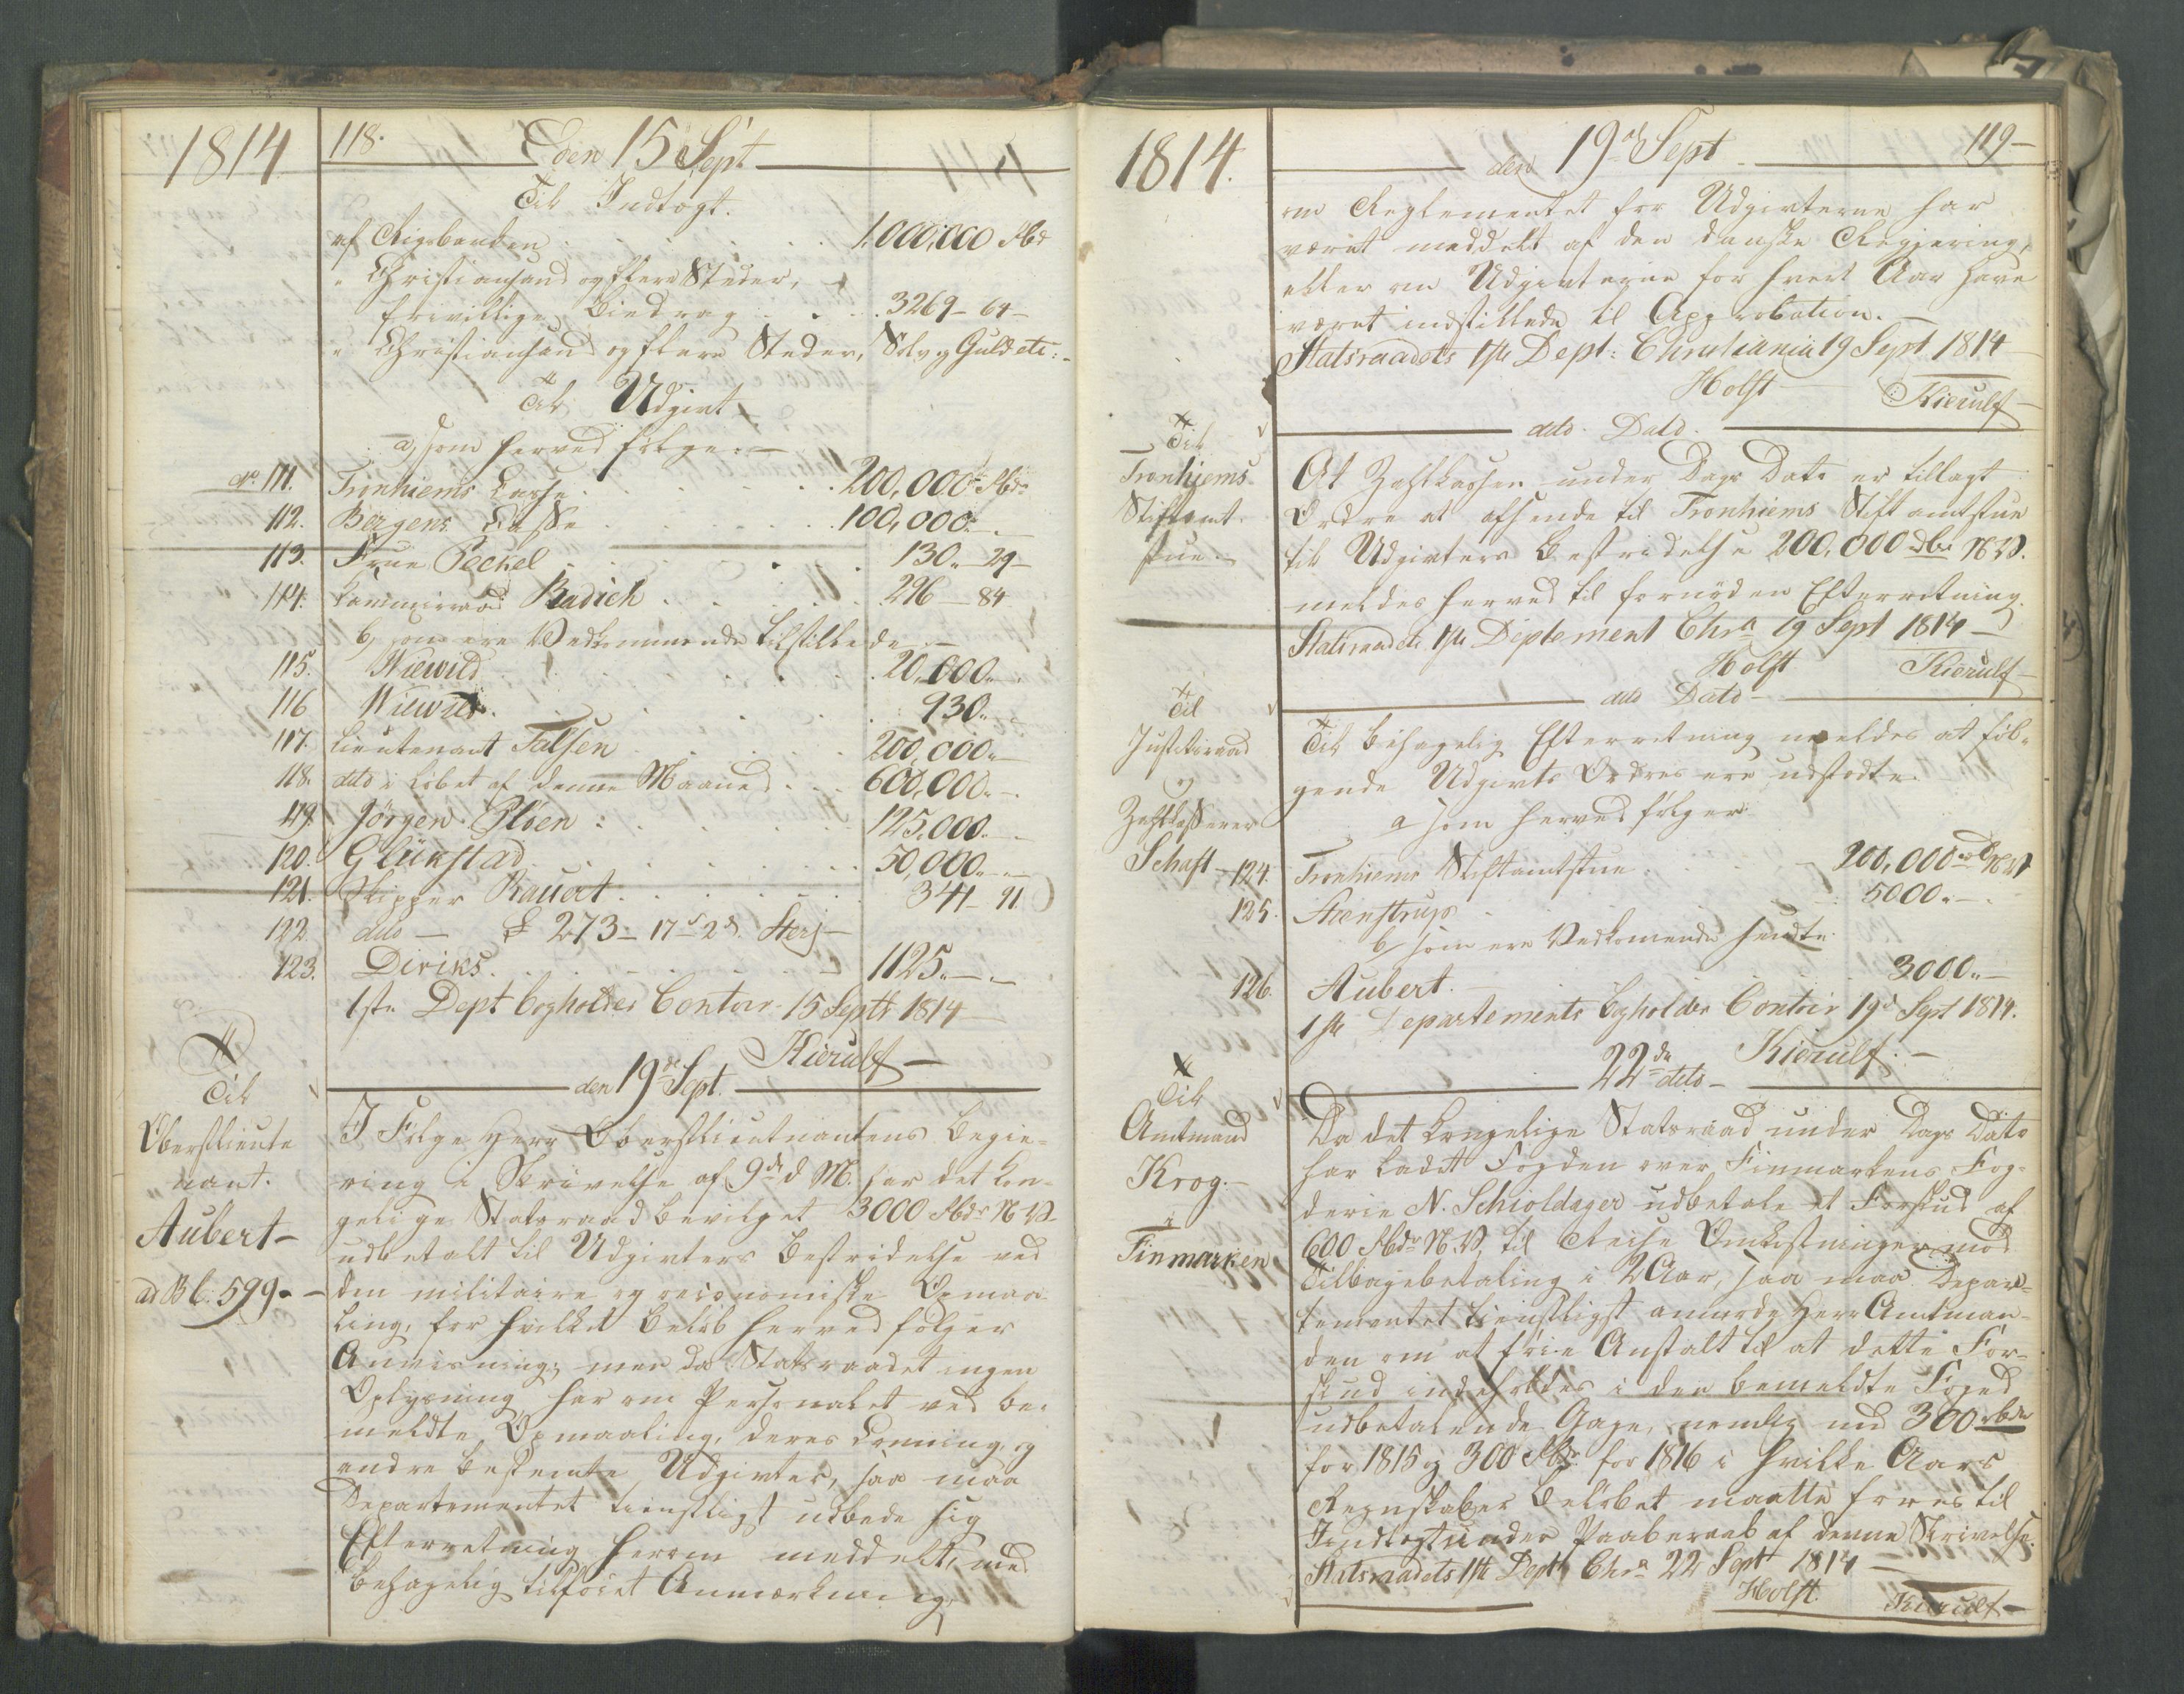 1814
118.
den 15 Sept
Til Indtægt.
af Rigsbanken . . . 1,000,000 Rbd
" Christiansand og flere Steder,
frivillige Bidrag . . . 3269 - 64 -
" Christiansand og flere Steder, Sølv og Guld etc: -
til Udgivt
a, som herved følger: -
No. 111. Tronhiems Casse . . . 200,000 Rbd
112. Bergens Casse . . . 100,000. -
113. Frue Pechel . . . 130 " 29 -
114. Kammerraad Radich . . . 296 - 84
b, som ere Vedkommende tilstillede -
115. Wiewild . . . 20,000 "
116 Wiewild . . . 930 "
117. Lieutenant Falsen . . . 200,000 "
118. dito i Løbet af denne Maaned . . . 600,000 " -
119. Jörgen Pløen . . . 125,000. -
120. Glückstad . . . 50,000 " -
121. Skipper Rauert . . . 341 - 91
122 dito - £ 273 - 17 s 2 d. Sterl -
123. Diriks . . . 1125 " -
1ste Dept Bogholder Contoir 15 Septb 1814
Kierulf -
den 19de Sept.
Til
Oberstlieute
nant.
Aubert -
ad Bl. 599 -
I Følge Herr Oberstlieutnantens Begie-
ring i Skrivelse af 9de d M. har det Kon-
gelige Statsraad bevilget 3000 Rbdr N.V.
udbetalt til Udgivters Bestridelse ved
den militaire og oeconomiske Opmaa-
ling, for hvilket Beløb herved følger
Anvisning; men da Statsraadet ingen
Oplysning har om Personalet ved be-
meldte Opmaaling, deres Lønning, og
andre bestemte Udgivter, saa maa
Departementet tienstligst udbede sig
Efterretning herom meddelt, med
behagelig tilføiet Anmærkning
1814.
den 19de Sept
119 -
om Reglementet for Udgivterne har
været meddelt af den danske Regjering,
eller om Udgivterne for hvert Aar have
været indstillede til Approbation. -
Statsraadets 1ste Dept: Christiania 19 Sept 1814
Holst Kierulf
dito Dato.
Til
Tronhjems
Stiftamt-
stue -
At Zahlkassen under Dags Dato er tillagt
Ordre at afsende til Tronhiems Stiftamtstue
til Udgivters Bestridelse 200,000 rbd N.V.
meldes herved til fornøden Efterretning.
Statsraadets 1ste Deptement Chra 19 Sept 1814 -
Holst Kierulf -
dito Dato -
Til
Justitsraad
og
Zahlkasserer
Schaft -
Til behagelig Efterretning meldes at føl-
gende Udgivts Ordres ere udstædte.
a som herved følger
124. Tronhiems Stiftamtstue . . . 200,000 rbd N.V
125. Steenstrup . . . 5000 " - .
b, som ere Vedkomende sendte
126. Aubert. . . . 3000 " -
1ste Departements Bogholder Contoir 19de Sept 1814.
Kierulf. -
22de dito -
Til
Amtmand
Krog. -
i
Finmarken
Da det kongelige Statsraad under Dags Dato
har ladet Fogden over Finmarkens Fog-
derie N. Schioldager udbetale et Forskud af
600 Rbdr N.V. til Reise Omkostninger mod
Tilbagebetaling i 2 Aar, saa maa Depar-
tementet tienstligst anmode Herr Amtman-
den om at føie Anstalt til at dette For-
skud indeholdes i den bemeldte Foged
udbetalende Gage, nemlig med 300 rbd
for 1815 og 300 Rbd. for 1816 i hvilke Aars
Regnskaber Beløbet maatte føres til
Indtægt under Paaberaab af denne Skrivelse.
Statsraadets 1ste Dept Chra 22 Sept 1814 -
Holst. Kierulf -